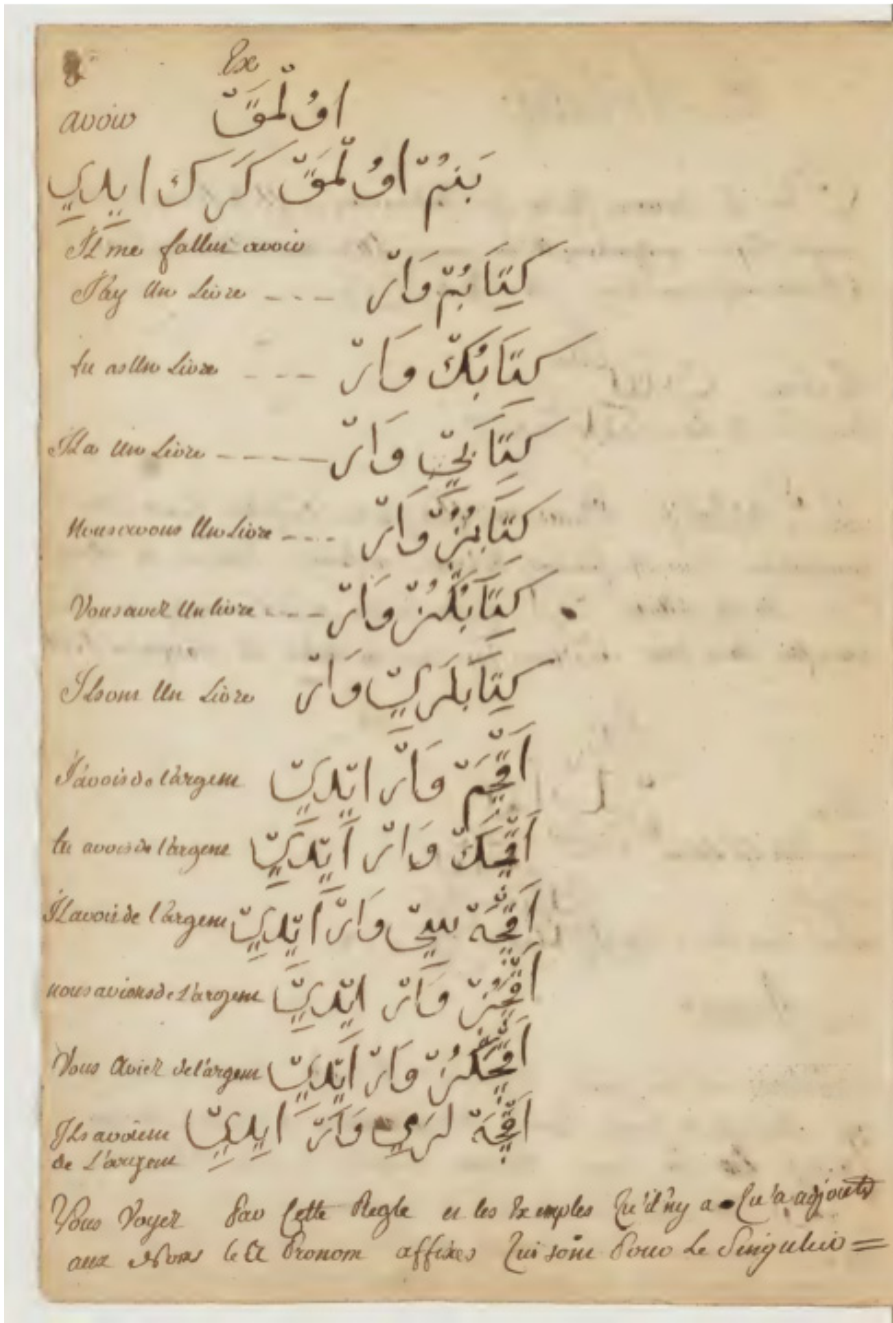 8 Ex
avoir اوُلْمَقْ
بَنمْ اوُلْمَقْ كَرَكْ ايدِي
Il me fallut avoir
J'ay Un Livre --- كِتَابُمْ وَارْ
tu as Un Livre --- كِتَابُكْ وَارْ
Il a Un Livre ----- كِتَابِيْ وَارْ
Nous avons Un Livre --- كِتَابُمُزْ وَارْ
Vous avez Un livre --- كِتَابُكُزْ وَارْ
Ils ont Un Livre كِتَابلَرِيْ وَارْ
J'avois de l'argent اَقْچَمْ وَارْ ايْدِيْ
tu avois de l'argent اَقْچَكْ وَارْ اَيْدِيْ
Il avoit de l'argent اَقْچَهْ سِيْ وَارْ اَيْدِيْ
nous avions de l'argent اَقْچَمُزْ وَارْ ايْدِيْ
Vous Aviez de l'argent اَقْچَكُزْ وَارْ اَيْدِيْ
Ils avoient اَقْچَهْ لَرِي وَارْ اَيدِيْ
de L'argent
Vous Voyez Par Cette Regle et les Exemples Qu'il n'y a Qu'a adjouter
aux Noms le Pronom affixes Qui sont Pour Le Singulier =